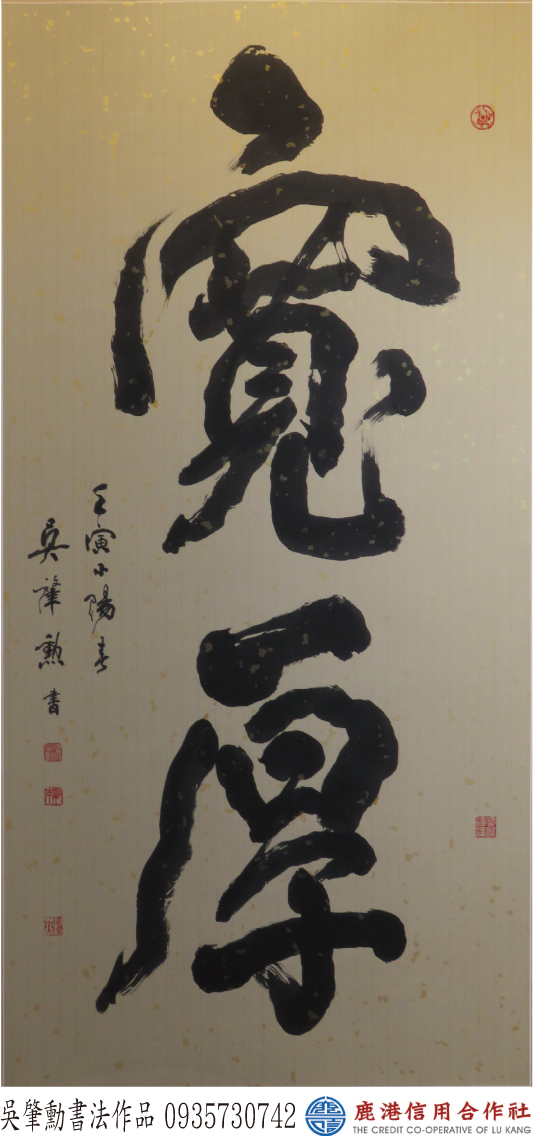 寬厚
壬寅小陽春
吳肇勳書
吳肇勳書法作品 0935730742
鹿港信用合作社
THE CREDIT CO-OPERATIVE OF LU KANG